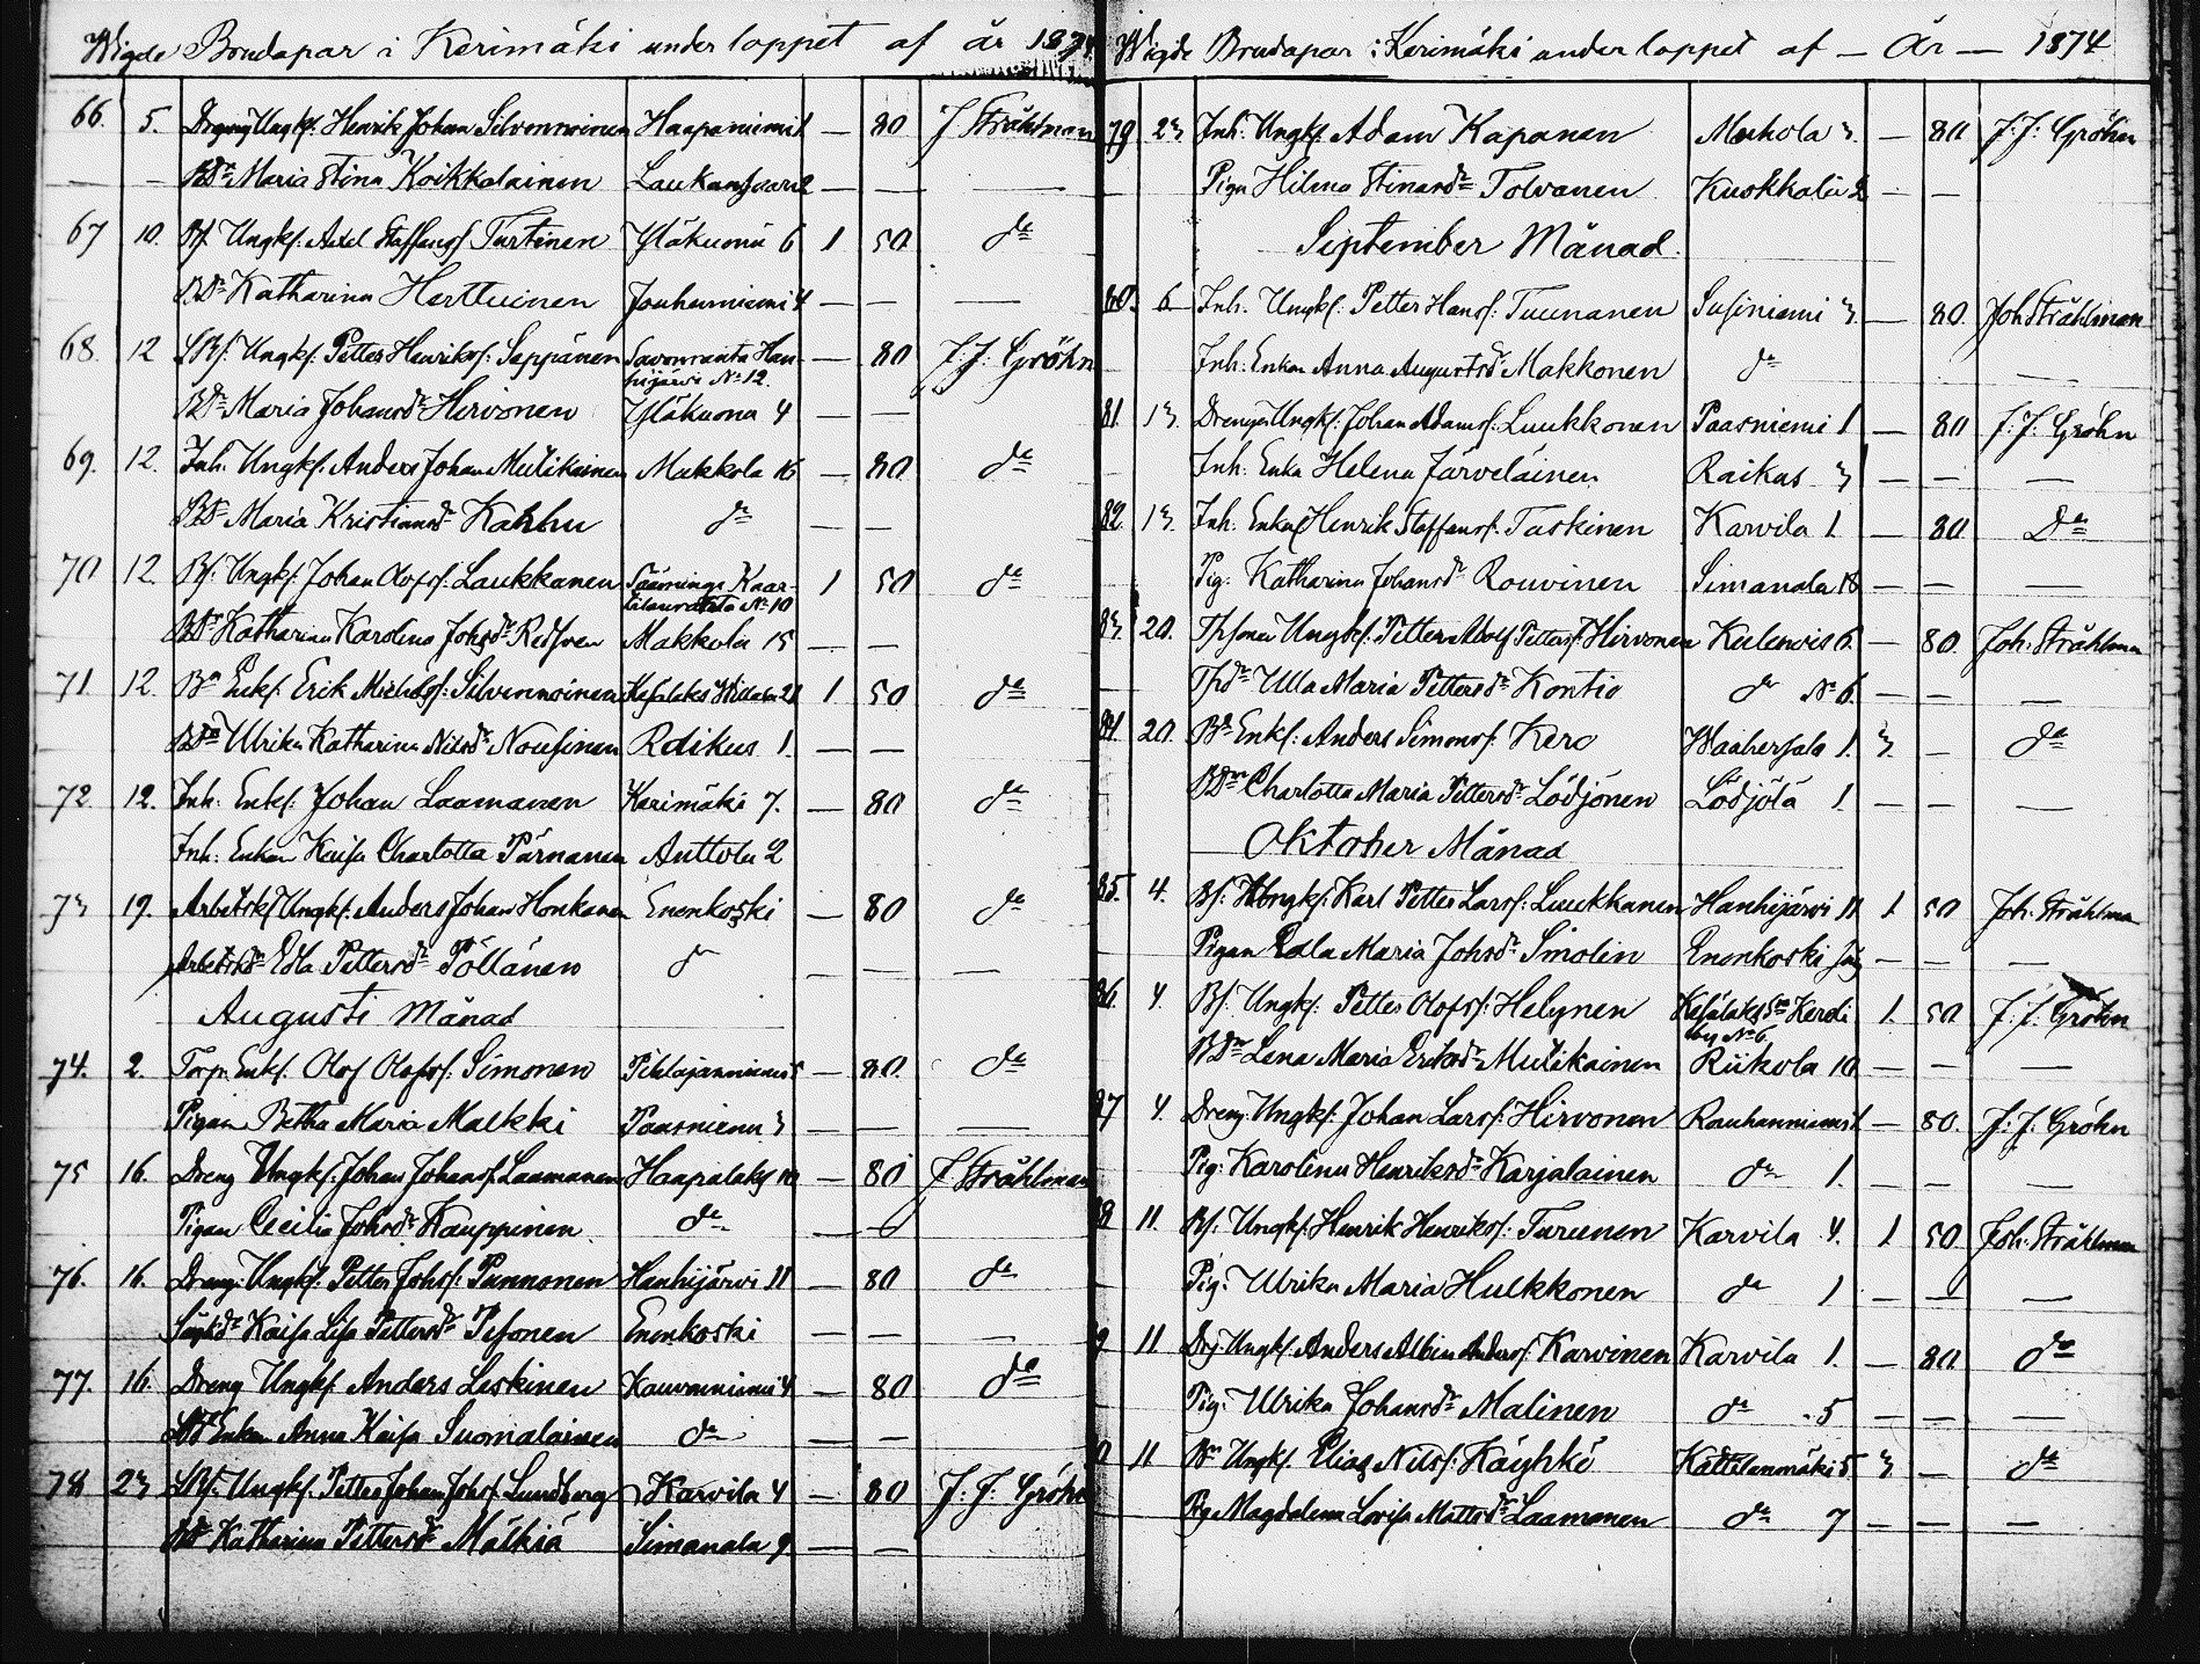 Wigde Brudapar i Kerimäki under loppet af år 1874
66. 5. Dreng Ungk: Henrik Johan Silvennoinen Haapaniemi 1 — 80 J Stråhlman
Bdr Maria Stina Koikkalainen Laukansaari 2 — — —
67 10. Bs. Ungk: Axel Staffanss Turtinen Yläkuona 6 1 50 do
Bdr Katharina Herttuinen Jouhenniemi 4 — — —
68. 12 Ungk: Petter Henrikss: Seppänen Savonranta Han- — 80 J: J: Gröhn
hijärvi No 12.
Bdr Maria Johansdr Hirvonen Yläkuona 4 — —
69. 12. Inh. Ungk: Anders Johan Mutikainen Makkola 16 — 80 do
Bdr Maria Kristiansdr Karhu do — —
70 12. Bs. Ungk: Johan Olofss: Laukkanen Sääminge Kaar- 1 50 do
tilanranta No 10
Bdr Katharina Karolina Johsdr Redsven Makkola 15 — —
71. 12. Bn Enkl. Erik Michelss: Silvennoinen Kesälaks Willala 21 1 50 do
Bdr Ulrika Katharina Nilsdr Nousinen Raikus 1. — —
72 12. Inh: Enkl: Johan Laamanen Kerimäki 7. — 80 do
Inh: Enkan Kaisa Charlotta Pärnänen Anttola 2
73 19. Arbetsk Ungk: Anders Johan Honkanen Enonkoski — 80 do
Arbetskdr Edla Pettersdr Pöllänen do — — —
Augusti Månad
74. 2. Torp. Enkl. Olof Olofss: Simonen Pihlajaniemi 5 — 80. do
Pigan Betha Maria Malkki Paasniemi 3 — — —
75 16. Dreng Ungk: Johan Johanss Laamanen Haapalaks 10 — 80 J. Stråhlman
Pigan Cecilia Johsdr Kauppinen do — —
76. 16. Dreng: Ungk: Petter Johss: Punnonen Hanhijärvi 11 — 80 do
Kaisa Lisa Pettersdr Pesonen Enonkoski — — —
77. 16. Dreng Ungk: Anders Leskinen Kauvonniemi 4 — 80 do
Enkan Anna Kaisa Suomalainen do — —
78 23 Ungk: Petter Johan Johss Lundberg Karvila 4 — 80 J: J: Gröhn
Bdr Katharina Pettersdr Mälkiä Simanala 9. — —
Wigde Brudapar i Kerimäki under loppet af — År — 1874
79 23 Inh: Ungk: Adam Kaponen Muhola 3. — 80 J: J: Gröhn
Pigan Hilma Stinasdr Tolvanen Kuokkala 2 — —
September Månad.
80. 6 Inh. Ungk: Petter Hanss: Tuunanen Susiniemi 3. — 80. Joh Stråhlman
Inh: Enkan Anna Augustsdr Makkonen do —
81. 13. Drengen Ungk: Johan Adamss: Luukkonen Paasniemi 1 — 80 J: J: Gröhn
Inh: Enka Helena Järveläinen Raikus 3 — — —
82. 13. Inh: Enkl Henrik Staffanss: Taskinen Karvila 1. — 80 Do
Pig: Katharina Johansdr Rouvinen Simanala 18 — — —
83 20. Ungk: Petter Adolf Petterss: Hirvonen Kulenvis 6. — 80. Joh: Stråhlman
Ulla Maria Pettersdr Kontio do No 6. — —
84. 20. Bd Enkl: Anders Simonss: Kero Waahersalo 1. 3. — do
Bdr Charlotta Maria Pettersdr Lödjönen Lödjölä 1. — — —
Oktober Månad
85. 4. Bs: Ungk: Karl Petter Larss: Luukkanen Hanhijärvi 11 1 50 Joh: Stråhlman
Pigan Edla Maria Johsdr Smolin Enonkoski — — —
86. 4. Bs. Ungk: Petter Olofss: Helynen Kesälaks Kerdi 1. 50 J. J. Gröhn
by No 6.
Bdr Lena Maria Eriksdr Mutikainen Riikola 10. — — —
87 4. Dreng: Ungk: Johan Larss: Hirvonen Rauhanniemi 1. — 80. J: J. Gröhn
Pig: Karolina Henriksdr Karjalainen do 1. — — —
8 11. Bs. Ungk: Henrik Henrikss: Turunen Karvila 4. 1 50 Joh: Stråhlman
Pig: Ulrika Maria Hulkkonen do 1 — — —
9 11 Drj. Ungk: Anders Albin Anderss: Karvinen Karvila 1. — 80. do
Pig: Ulrika Johansdr Malinen do 5 — — —
0 11 Bn Ungk. Elias Nilss: Käyhkö Kattilanmäki 5. 3. — do
Pig Magdalena Lovisa Mattsdr Laamanen do 7 — — —